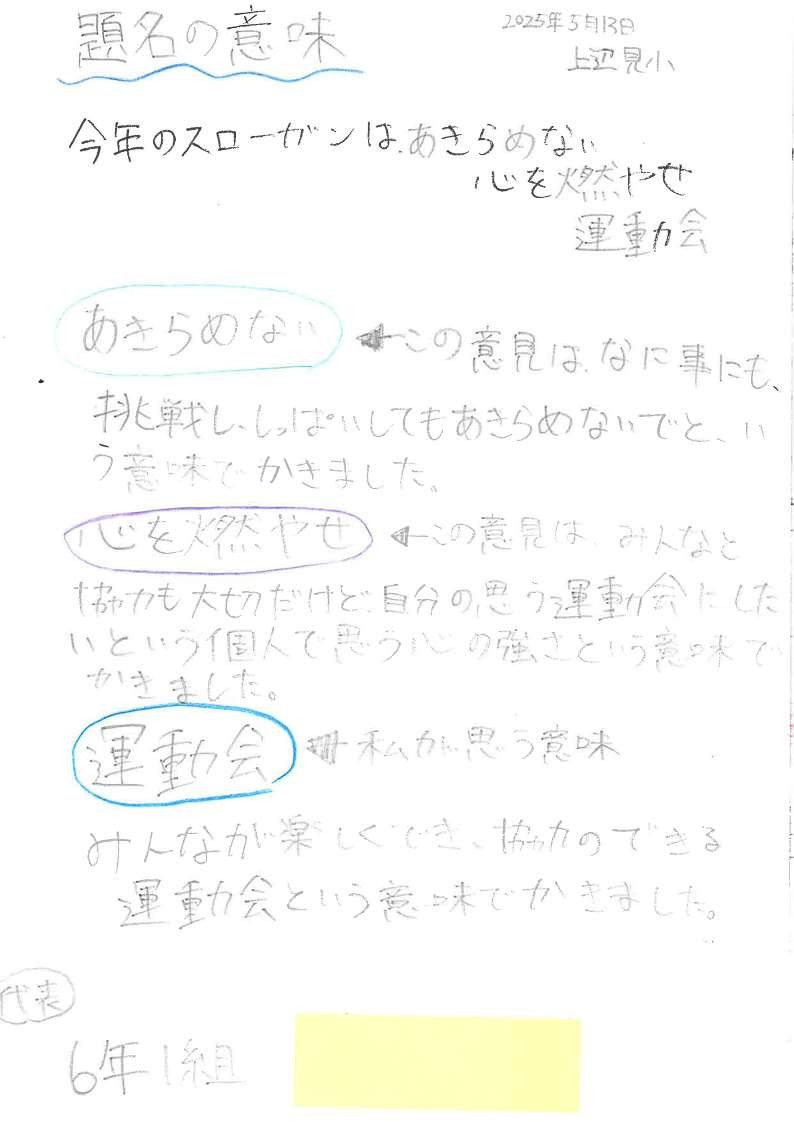 題名の意味
2025年5月13日
上辺見小
今年のスローガンは、あきらめない
心を燃やせ
運動会
あきらめない ←この意見は、なに事にも、
挑戦し、しっぱいしてもあきらめないでと、い
う意味でかきました。
心を燃やせ ←この意見は、みんなと
協力も大切だけど、自分の思う運動会にした
いという個人で思う心の強さという意味で
かきました。
運動会 ←私が思う意味
みんなが楽しくでき、協力のできる
運動会という意味でかきました。
代表
6年1組